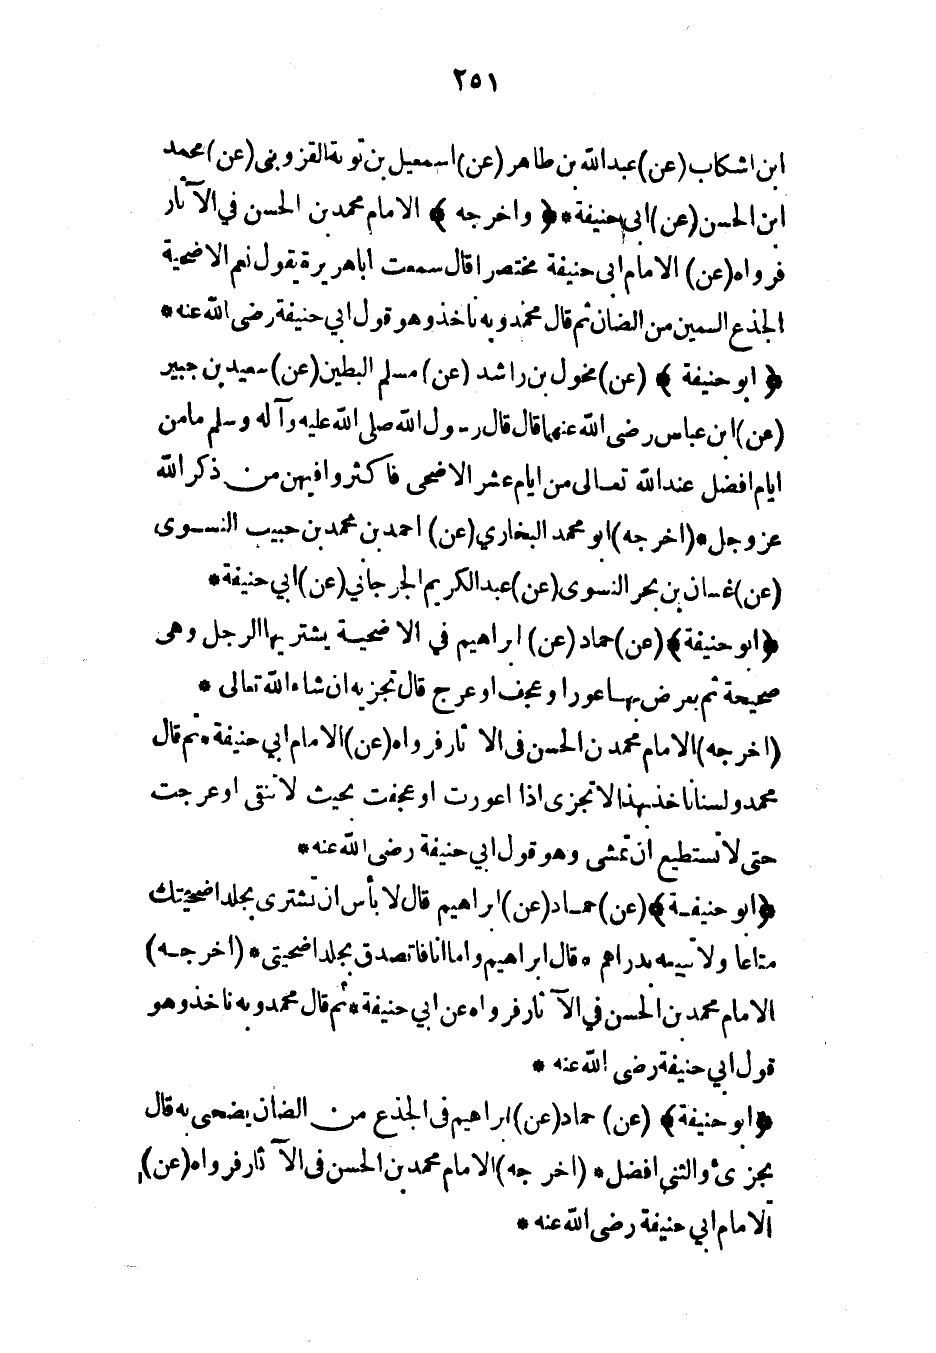 ٢٥١
ابن اشكاب (عن) عبدالله بن طاهر (عن) اسمعيل بن توبة القزوينى (عن) محمد
ابن الحسن (عن) ابى حنيفة * ﴿ واخرجه ﴾ الامام محمد بن الحسن في الآثار
فرواه (عن) الامام ابى حنيفة مختصرا قال سمعت اباهريرة يقول نعم الاضحية
الجذع السمين من الضان ثم قال محمد وبه ناخذ وهو قول ابي حنيفة رضى الله عنه *
﴿ ابو حنيفة ﴾ (عن) مخول بن راشد (عن) مسلم البطين (عن) سعيد بن جبير
(عن) ابن عباس رضى الله عنهما قال قال رسول الله صلى الله عليه وآله وسلم مامن
ايام افضل عند الله تعالى من ايام عشر الاضحى فاكثروا فيهن من ذكر الله
عز وجل * (اخرجه) ابو محمد البخاري (عن) احمد بن محمد بن حبيب النسوى
(عن) غسان بن بحر النسوى (عن) عبدالكريم الجرجاني (عن) ابي حنيفة *
﴿ ابو حنيفة ﴾ (عن) حماد (عن) ابراهيم في الاضحية يشتريها الرجل وهى
صحيحة ثم يعرض بها عور او عجف او عرج قال تجزيه ان شاء الله تعالى *
(اخرجه) الامام محمد بن الحسن فى الآثار فرواه (عن) الامام ابي حنيفة * ثم قال
محمد ولسنا ناخذ بهذا لا تجزى اذا اعورت او عجفت بحيث لا تنقى او عرجت
حتى لا تستطيع ان تمشى وهو قول ابي حنيفة رضى الله عنه *
﴿ ابو حنيفة ﴾ (عن) حماد (عن) ابراهيم قال لا بأس ان تشترى بجلد اضحيتك
متاعا ولا تبيعه بدراهم * قال ابراهيم واما انا فاتصدق بجلد اضحيتى * (اخرجه)
الامام محمد بن الحسن في الآثار فرواه عن ابي حنيفة * ثم قال محمد وبه ناخذ وهو
قول ابي حنيفة رضى الله عنه *
﴿ ابو حنيفة ﴾ (عن) حماد (عن) ابراهيم فى الجذع من الضان يضحى به قال
يجزئ والثني افضل * (اخرجه) الامام محمد بن الحسن فى الآثار فرواه (عن)
الامام ابي حنيفة رضى الله عنه *